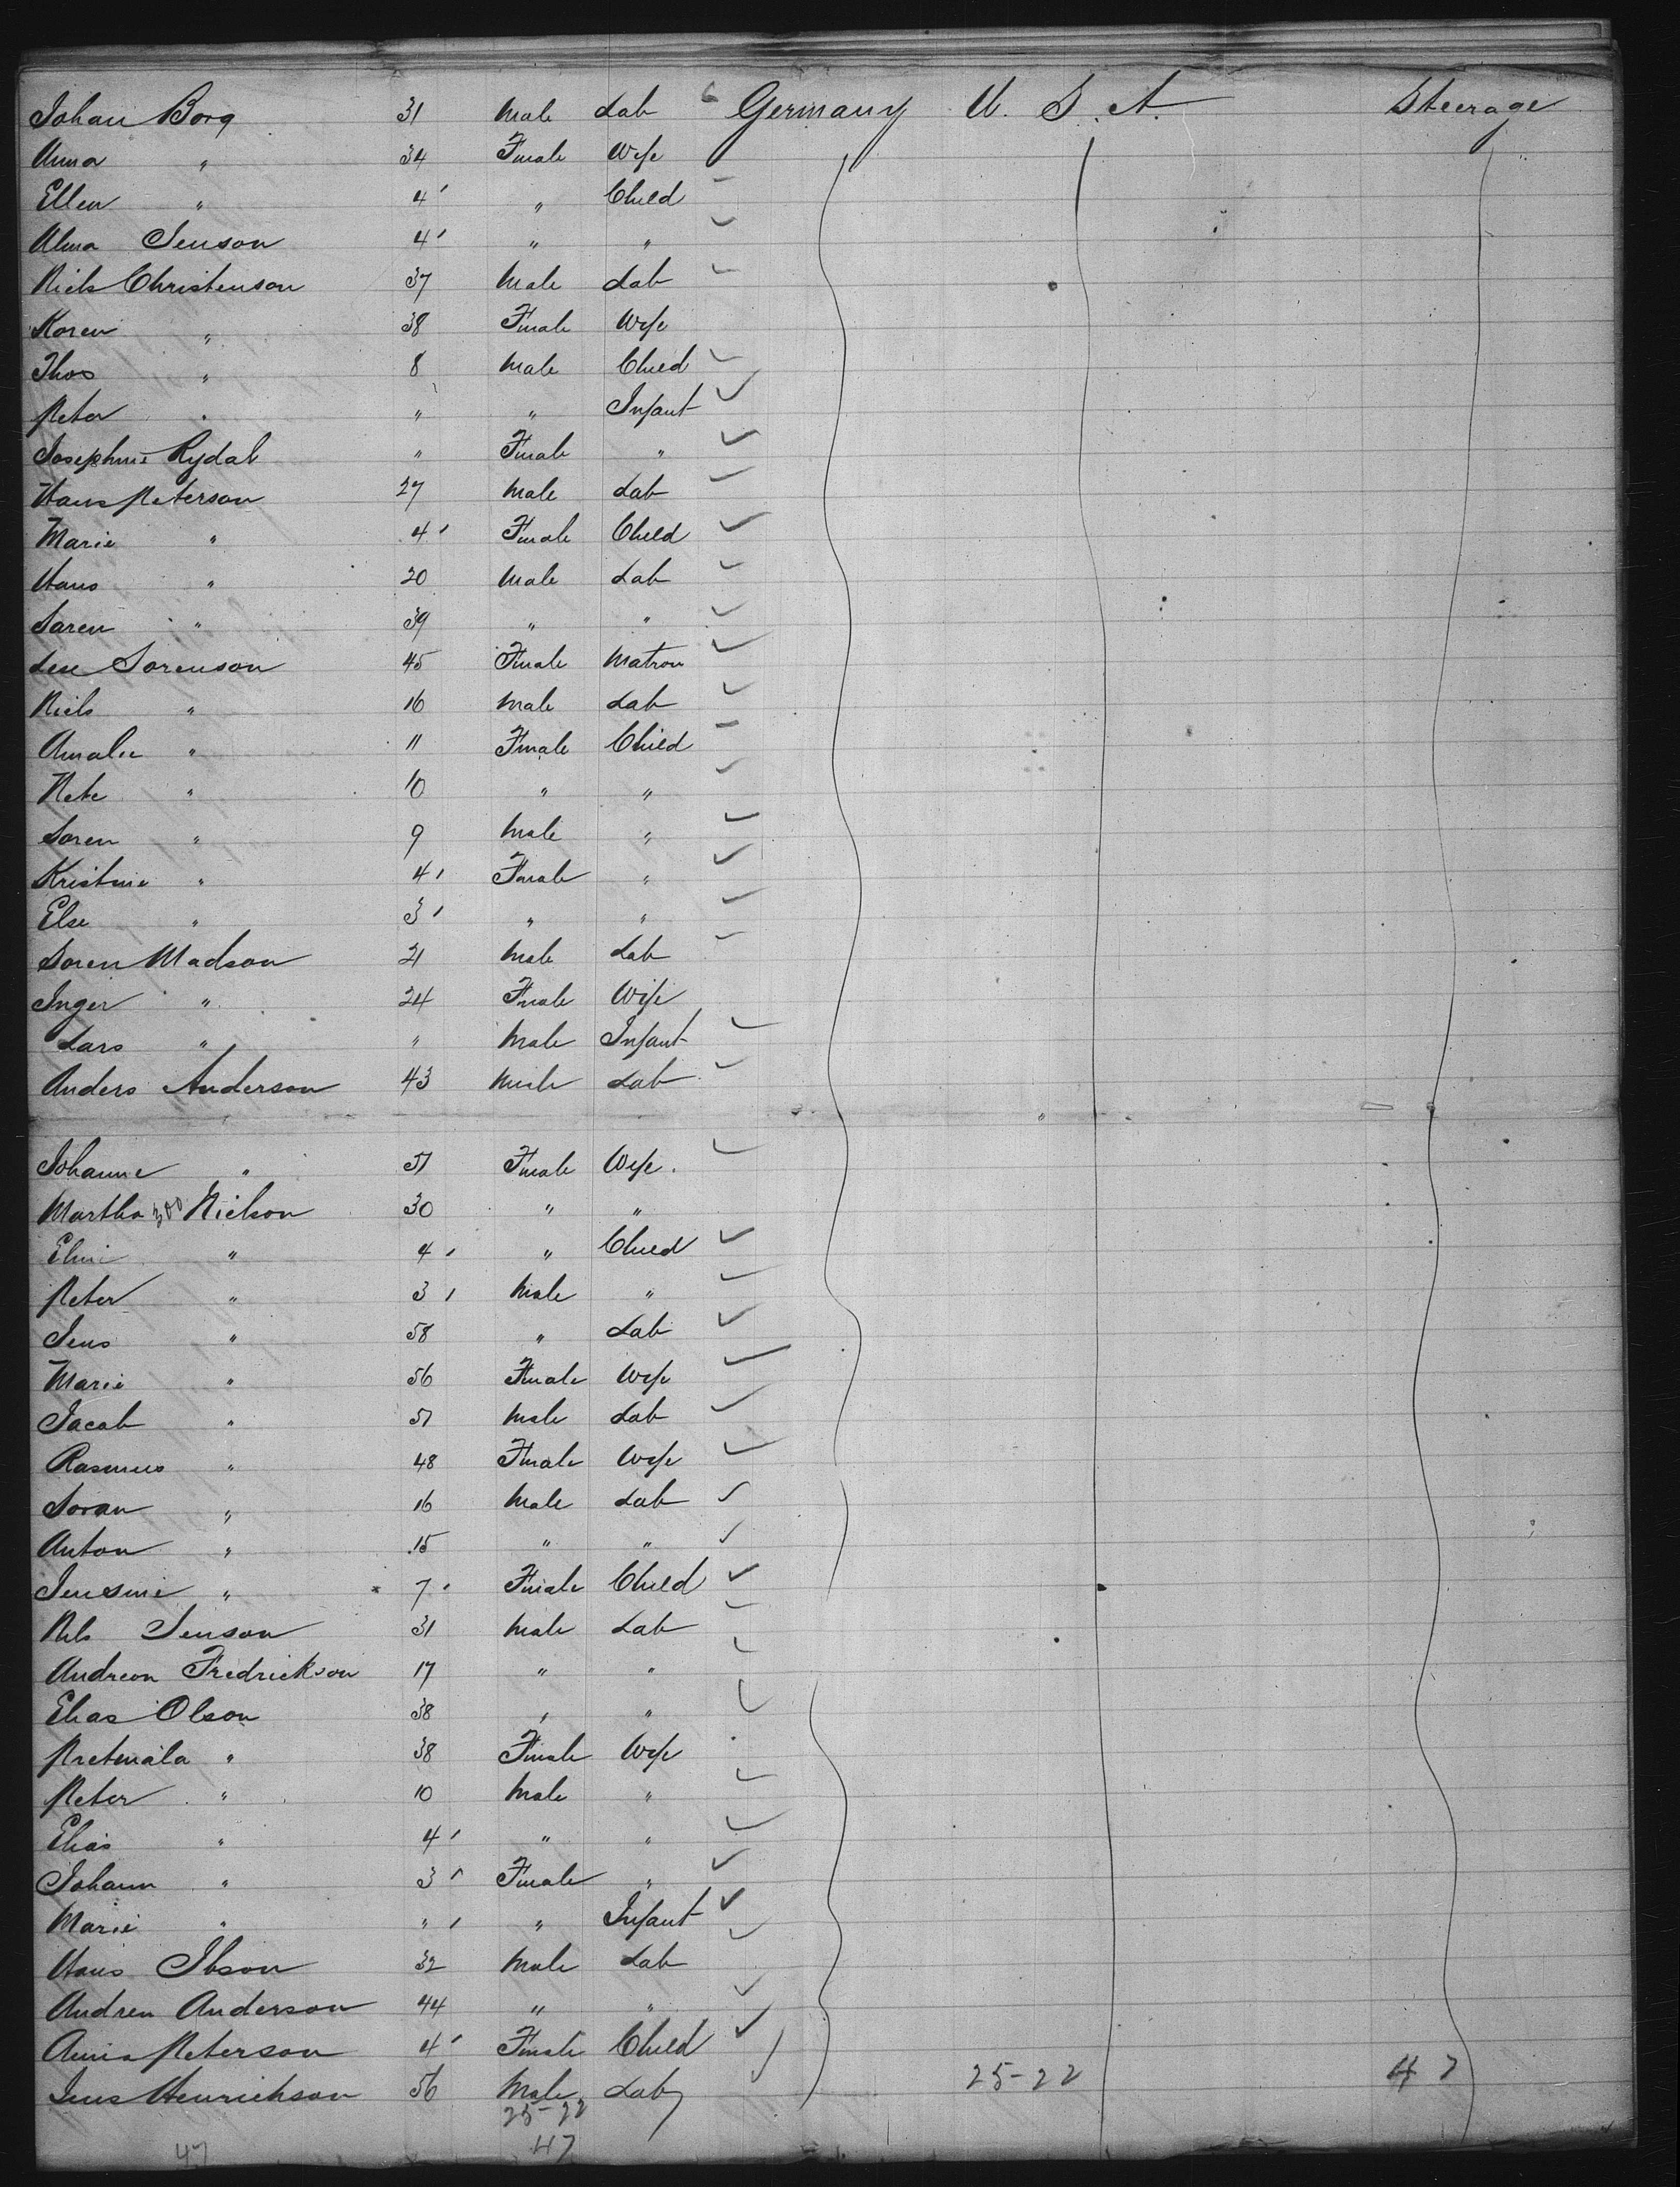 Johan Borg 31 Male Lab Germany U. S. A. Steerage
Anna " 34 Female Wife
Ellen " 4 " Child
Alma Jenson 4 " "
Niels Christenson 37 Male Lab
Koren " 38 Female Wife
Thos " 8 Male Child
Peter " " " Infant
Josephine Rydal " Female "
Hans Peterson 27 Male Lab
Marie " 4 Female Child
Hans " 20 Male Lab
Saren " 39 " "
Lese Sorenson 45 Female Matron
Niels " 16 Male Lab
Amalie " 11 Female Child
Nete " 10 " "
Soren " 9 Male "
Kristine " 4 Female "
Else " 3 " "
Soren Madson 21 Male Lab
Inger " 24 Female Wife
Lars " " Male Infant
Anders Anderson 43 Male Lab
Johanne " 51 Female Wife
Martha 300 Nielson 30 " "
Elmi " 4 " Child
Peter " 3 Male "
Jens " 58 " Lab
Marie " 56 Female Wife
Jacob " 51 Male Lab
Rasmus " 48 Female Wife
Soran " 16 Male Lab
Anton " 15 " "
Jensine " 7 Female Child
Nels Jenson 31 Male Lab
Andreon Fredrickson 17 " "
Elias Olson 38 " "
" 38 Female Wife
Peter " 10 Male "
Elias " 4 " "
Johann " 3 Female "
Marie " " " Infant
Hans Ibson 32 Male Lab
Andren Anderson 44 " "
Anna Peterson 4 Female Child
Jens Henrickson 56 Male Lab 25-22 47
25-22
47 47